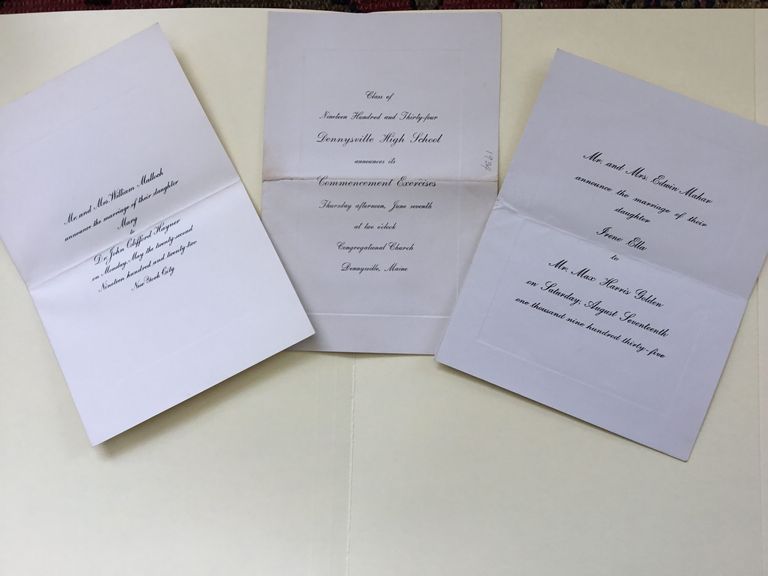 Mr. and Mrs. William Mulloch
announce the marriage of their daughter
Mary
to
Dr. John Clifford Hayner
on Monday, May the twenty-second
Nineteen hundred and twenty two
New York City
Class of
Nineteen Hundred and Thirty-four
Dennysville High School
announces its
Commencement Exercises
Thursday afternoon, June seventh
at two o'clock
Congregational Church
Dennysville, Maine
1934
Mr. and Mrs. Edwin Mahar
announce the marriage of their
daughter
Irene Ella
to
Mr. Max Harris Golden
on Saturday, August Seventeenth
one thousand nine hundred thirty-five